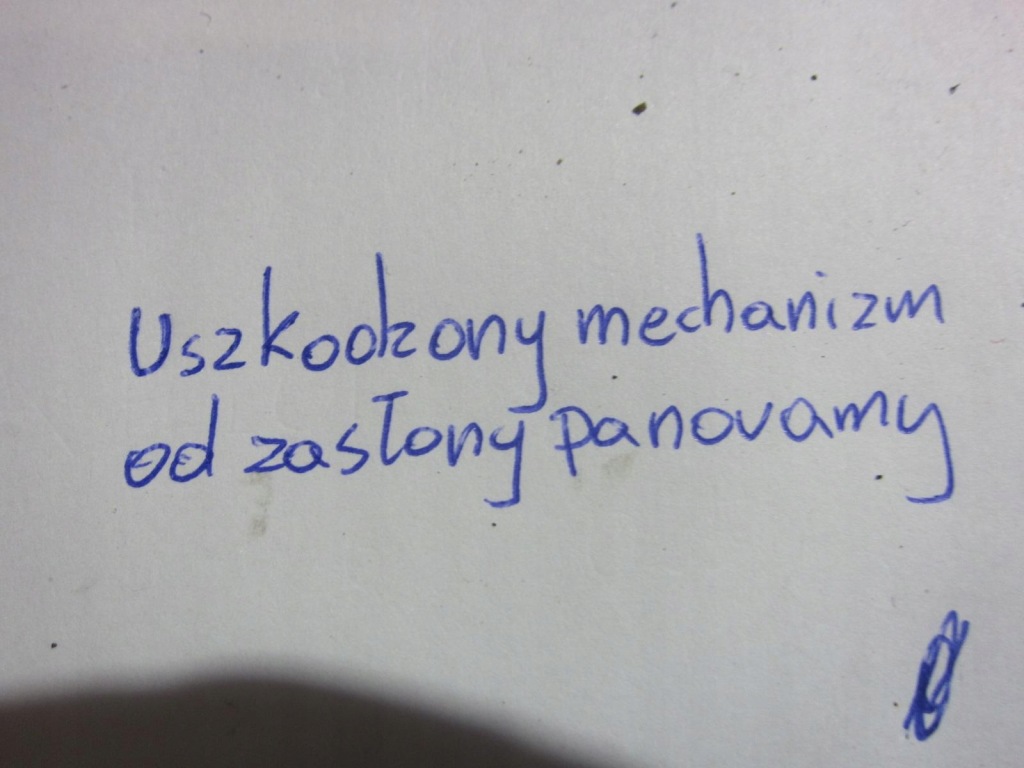 Uszkodzony mechanizm
od zasłony panoramy